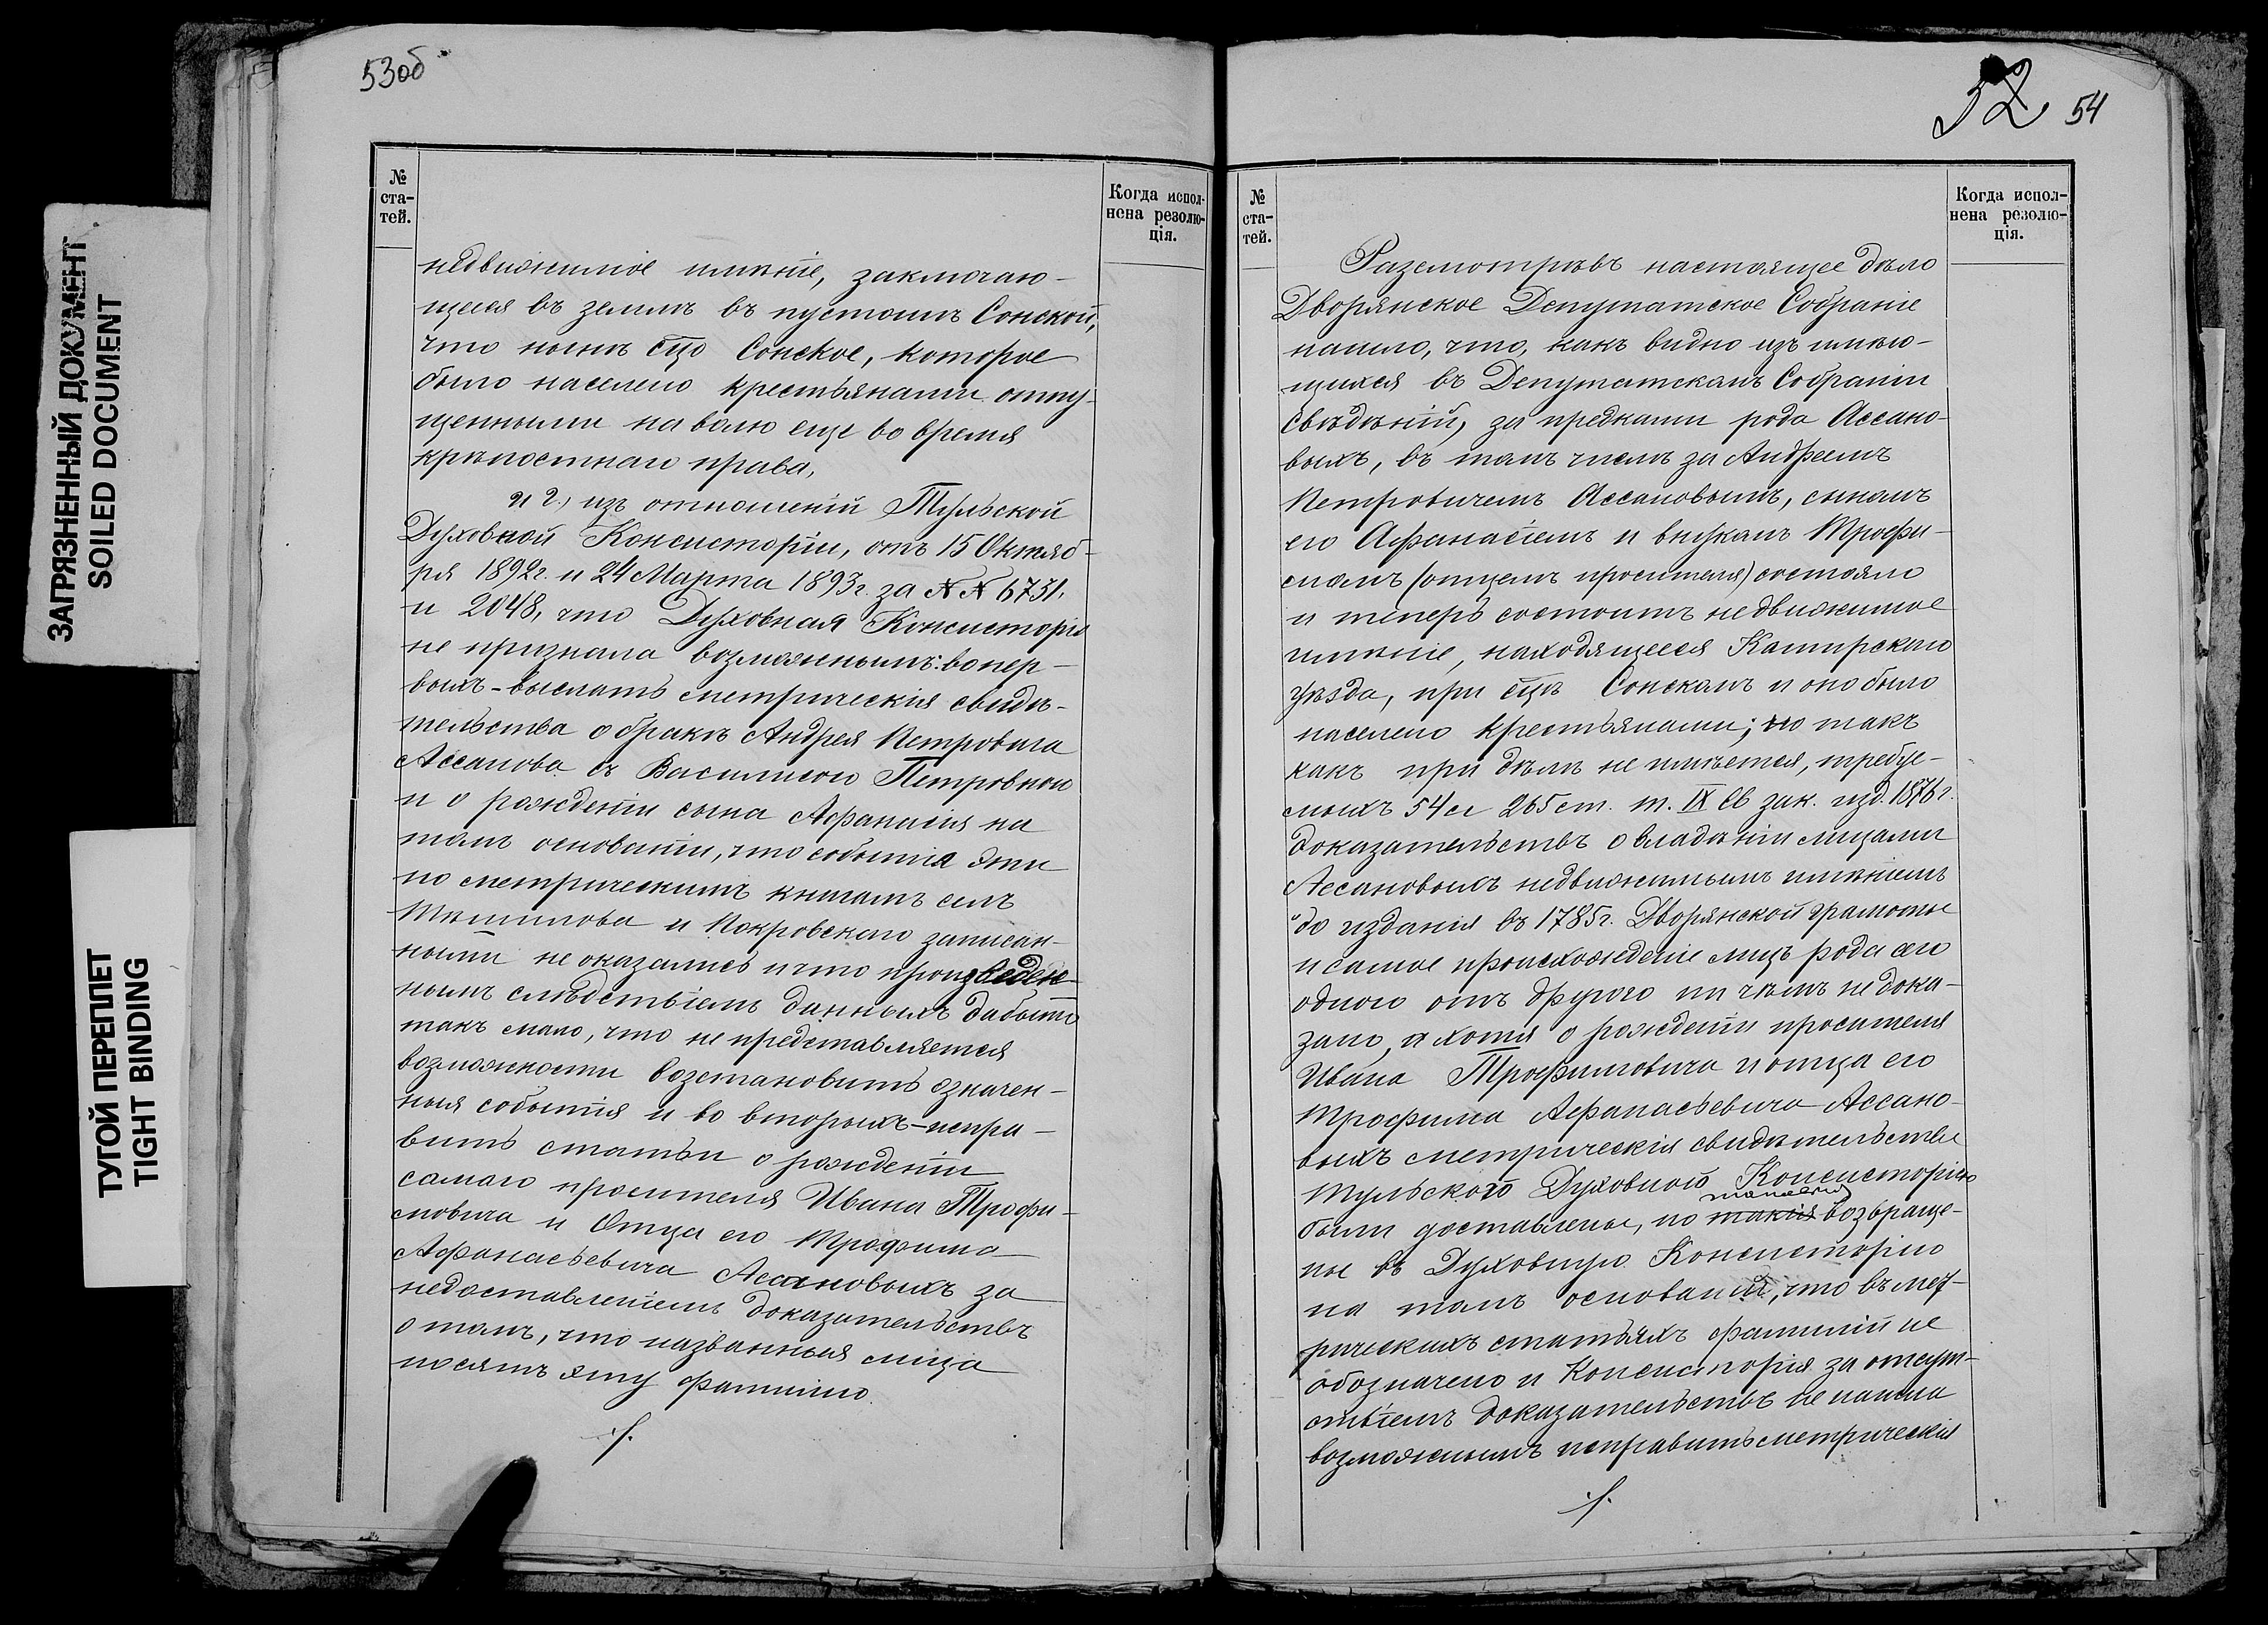 53об
№
ста-
тей.
Когда испол-
нена резолю-
ція.
недвижимое имѣніе, заключаю-
щееся въ землѣ въ пустоши Сонской,
что нынѣ сцо Сонское, которое
было населено крестьянами отпу-
щенными на волю еще во время
крѣпостнаго права,
и 2.) изъ отношеній Тульской
Духовной Консисторіи, отъ 15 Октяб-
ря 1892г. и 24 Марта 1893г. за №№ 6731.
и 2048, что Духовная Консисторія
не признала возможнымъ: вопер-
выхъ-выслать метрическія свидѣ-
тельства о бракѣ Андрея Петровича
Ассанова съ Василисою Петровною
и о рожденіи сына Афанасія на
томъ основаніи, что событія эти
по метрическимъ книгамъ селъ
и Покровскаго записан-
ными не оказались и что произведен-
нымъ слѣдствіемъ данныхъ добыто
такъ мало, что не представляется
возможности возстановить означен-
ныя событія и во вторыхъ-испра-
вить статьи о рожденіи
самаго просителя Ивана Трофи-
мовича и Отца его Трофима
Афанасьевича Асановыхъ за
недоставленіемъ доказательствъ
о томъ, что названныя лица
носятъ эту фамилію.
./.
ЗАГРЯЗНЕННЫЙ ДОКУМЕНТ
SOILED DOCUMENT
ТУГОЙ ПЕРЕПЛЕТ
TIGHT BINDING
52 54
№
ста-
тей.
Когда испол-
нена резолю-
ція.
Разсмотрѣвъ настоящее дѣло
Дворянское Депутатское Собраніе
нашло, что, какъ видно изъ имѣю-
щихся въ Депутатскомъ Собраніи
свѣдѣній, за предками рода Ассано-
выхъ, въ томъ числѣ за Андреемъ
Петровичемъ Ассановымъ, сыномъ
его Афанасіемъ и внукомъ Трофи-
момъ (отцемъ просителя) состояло
и теперь состоитъ недвижимое
имѣніе, находящееся Каширскаго
уѣзда, при сцѣ Сонскомъ и оно было
населено крестьянами; но такъ
какъ при дѣлѣ не имѣется, требуе-
мыхъ 54 и 265 ст. т. IX Св зак. изд. 1876г.
доказательствъ о владѣніи лицами
Ассановыхъ недвижимымъ имѣніемъ
до изданія въ 1785г. Дворянской грамоты
и самое происхожденіе лицъ рода сего
одного отъ другого ни чѣмъ не дока-
зано, а хотя о рожденіи просителя
Ивана Трофимовича и отца его
Трофима Афанасьевича Ассано-
выхъ метрическія свидѣтельства
Тульскою Духовною Консисторіею
были доставлены, но такія возвраще-
ны въ Духовную Консисторію
на томъ основаніи, что въ мет-
рическихъ статьяхъ фамиліи не
обозначено и Консисторія за отсут-
ствіемъ доказательствъ не нашла
возможнымъ исправить метрическія
./.